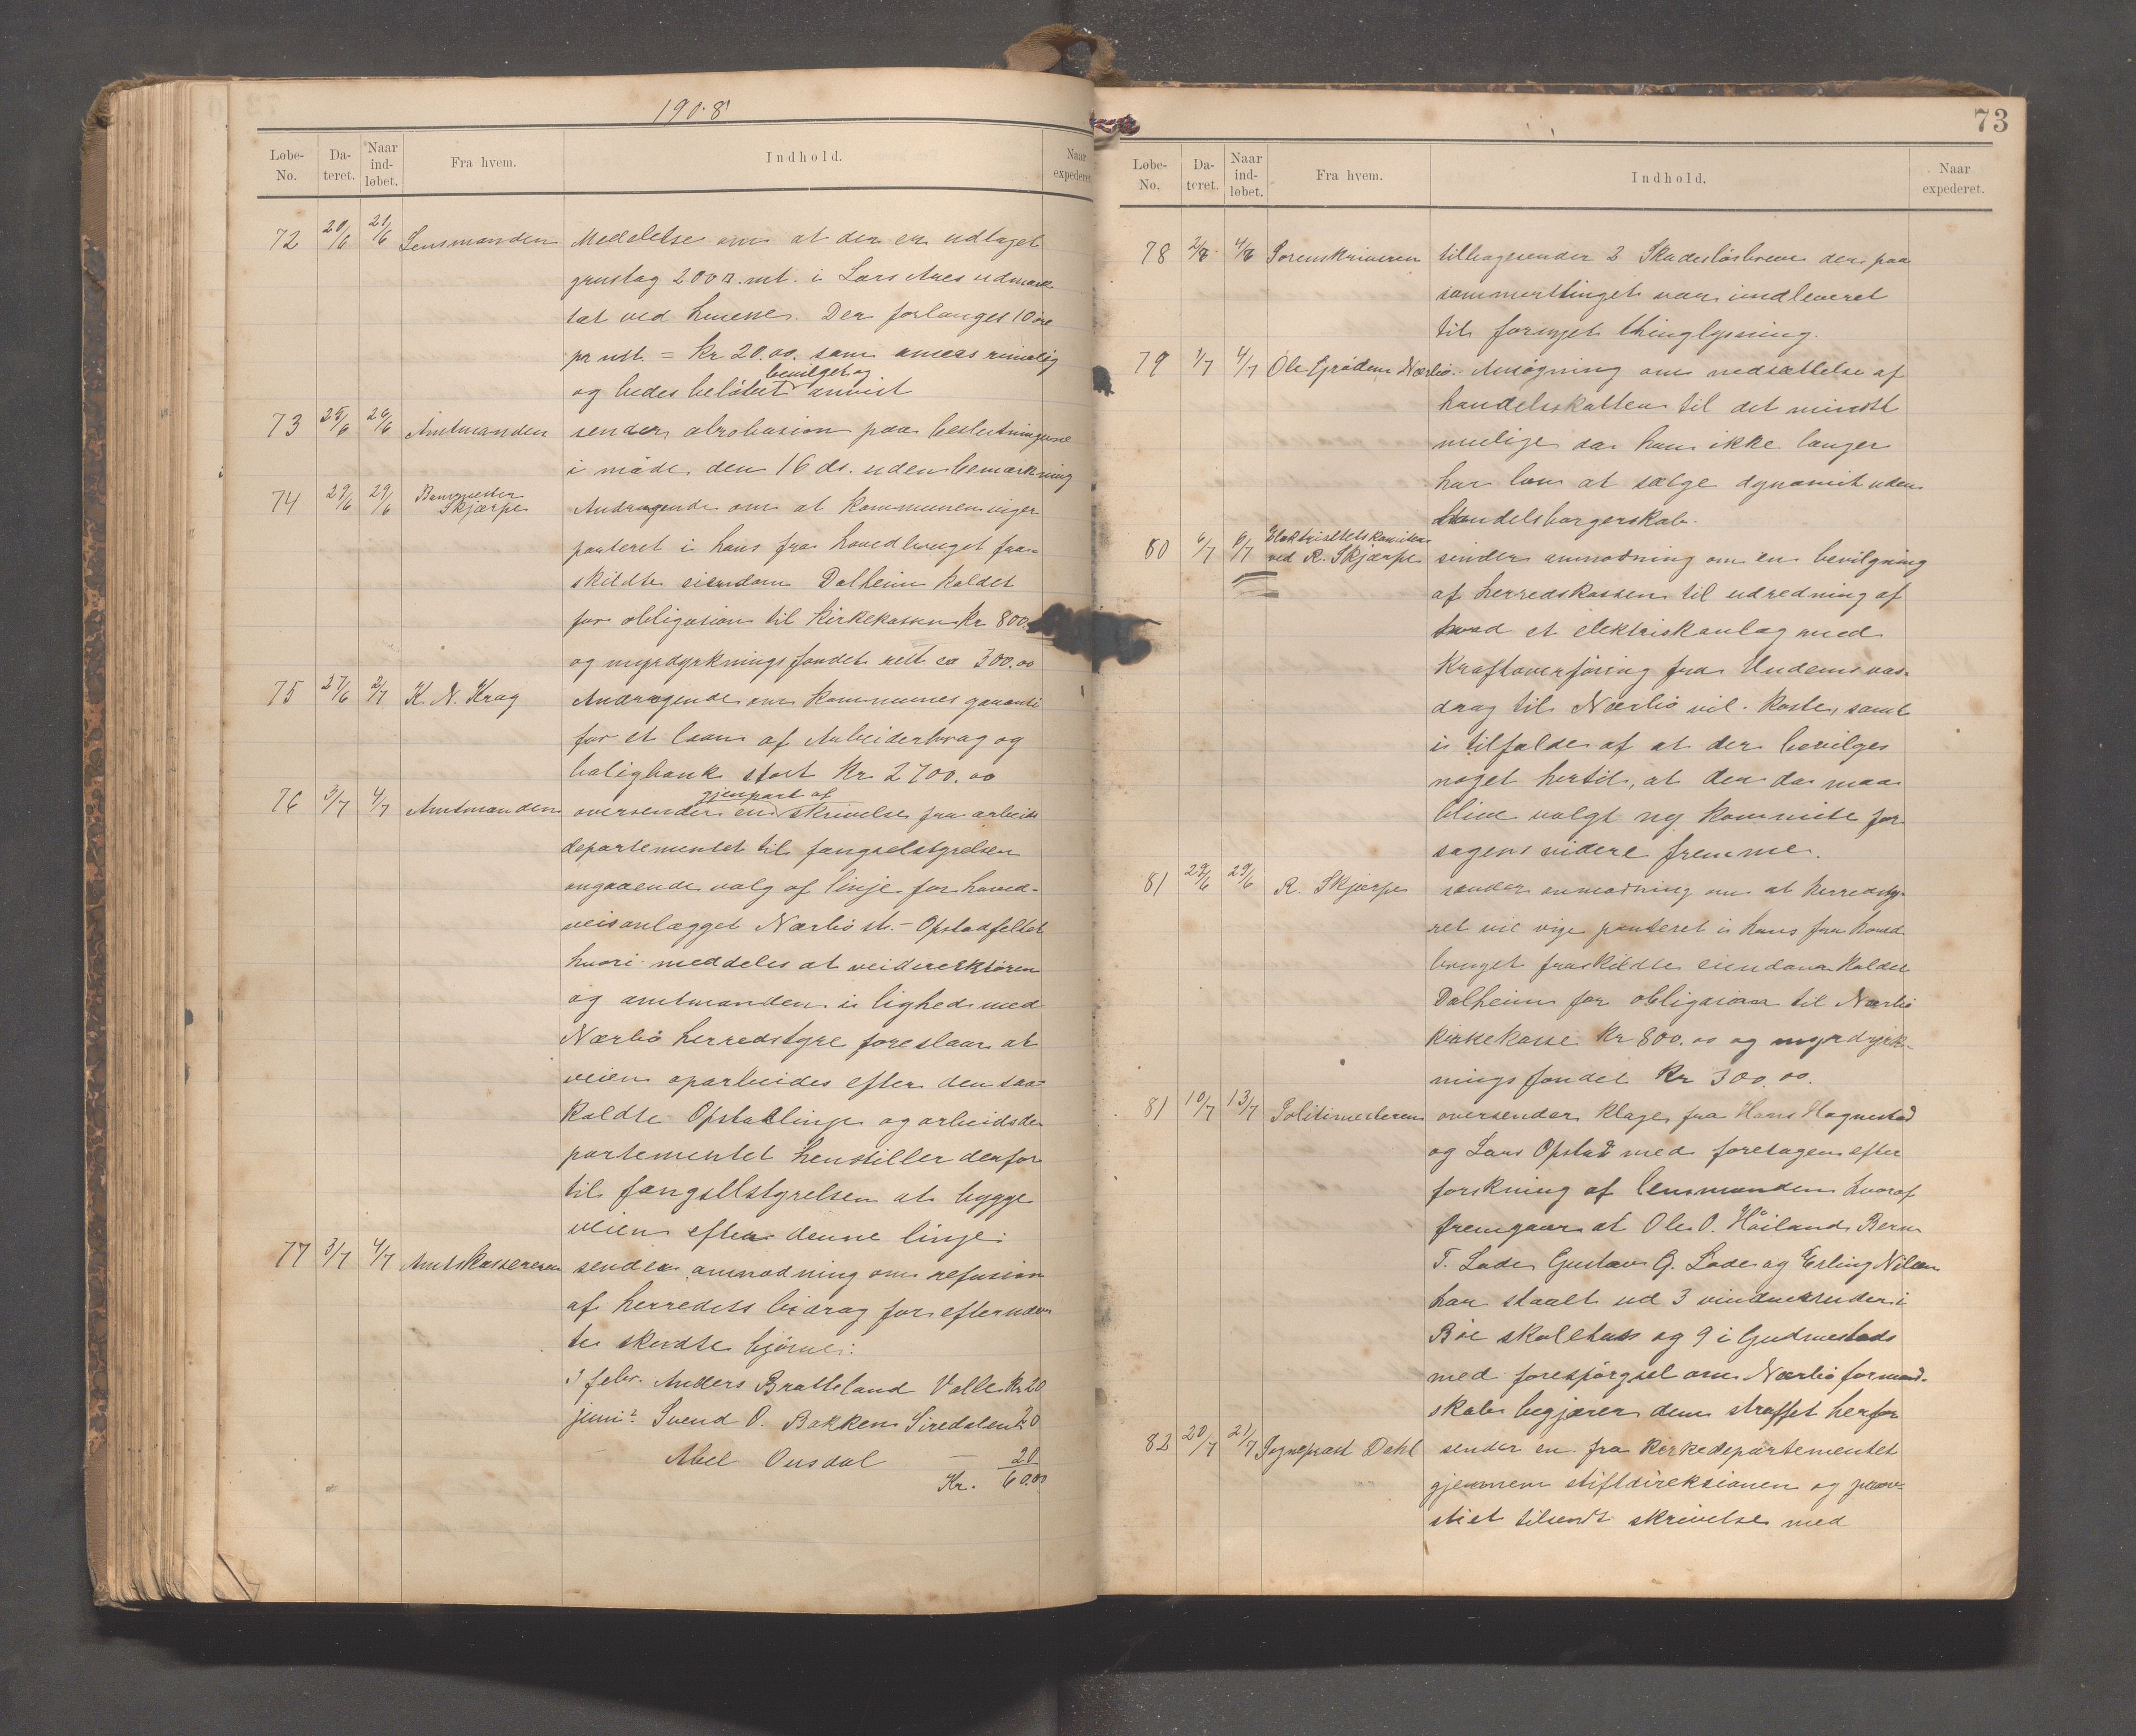 1908
Løbe-No. Da-teret. Naar ind-løbet. Fra hvem. Indhold. Naar expederet.
72 20/6 21/6 Lensmanden Medelelse om at der er udtaget
grustag 200 □.mt. i Lars Aues udmark
tæt ved husene. Der forlanges 10 øre
pr mt. = Kr 20.00. som ansees rimelig
bevilget og
og bedes beløbet anvist
73 25/6 26/6 Amtmanden sender abrobasion paa beslutningerne
i møde den 16 ds. uden bemærkning
74 29/6 29/6 Skjærpe Andragende om at Kommunen viger
panteret i hans fra hovedbruget fra-
skildte eiendom Dalheim kaldet
for obligasion til Kirkekassen Kr 800.
og myrdyrkningsfondet rest ca 300.00
75 27/6 2/7 K. N. Krag Andragende om Kommunes garanti
for et laan af Arbeiderbrug og
boligbank stort Kr. 2700.00
gjenpart af
76 3/7 4/7 Amtmanden oversender en skrivelse fra arbeids
departementet til fængselstyrelsen
angaaende valg af linje for hoved-
veisanlægget Nærbø st. - Opstadfeltet
hvori meddeles at veidirektøren
og amtmanden i lighed med
Nærbø herredstyre foreslaar at
veien oparbeides efter den saa
kaldte Opstadlinje og arbeidsde
partementet henstiller derfor
til fængselstyrelsen at bygge
veien efter denne linje.
77 3/7 4/7 Amtskassereren sender anmodning om refusion
af herredets bidrag for efternævn
te skudte bjørne:
febr. Anders Bratteland Valle Kr 20
juni Svend O. Bakken Siredalen 20
Abel Ousdal — 20
Kr. 60.00
73
Løbe-No. Da-teret. Naar ind-løbet. Fra hvem. Indhold. Naar expederet.
78 2/8 4/8 Sorenskriveren tilbagesender 2 Skadesløsbreve der paa
sommertinget var indleveret
til fornyet thinglysning.
79 1/7 4/7 Ole Grødem Nærbø. Ansøgning om nedsættelse af
handelsskatten til det mindst
mulige da han ikke længer
har lov at sælge dynamit uden
handelsborgerskab.
80 6/7 6/7 Elektrisitetskomiteen
ved R. Skjærpe sender anmodning om en bevilgning
af herredskassen til udredning af
hvad et elektriskanlæg med
Kraftoverføring fra Undems vas-
drag til Nærbø vil koste, samt
i tilfælde af at der bevilges
noget hertil, at der da maa
blive valgt ny Komite for
sagens videre fremme.
81 29/6 29/6 R. Skjærpe sender anmodning om at herredsty-
ret vil vige panteret i hans fra hoved
bruget fraskildte eiendom kaldet
Dalheim for obligasion til Nærbø
Kirkekasse Kr 800.00 og myrdyrk-
ningsfondet Kr 300.00.
81 10/7 13/7 Politimesteren oversender klage fra Hans Hognestad
og Lars Opstad med foretagen efter
forskning af lensmanden hvoraf
fremgaar at Ole O. Høiland, Bern
T. Lode Gustav G. Lode og Erling Nilsen
har slaaet ud 3 vinduesruder i
Bøe skolehus og 9 i Gudmestads
med forespørgsel om Nærbø formand-
skab begjærer dem straffet herfor
82 20/7 21/7 Sogneprest Dahl sender en fra Kirkedepartementet
gjennem stiftdireksionen og prov-
stiet tilsendt skrivelse med